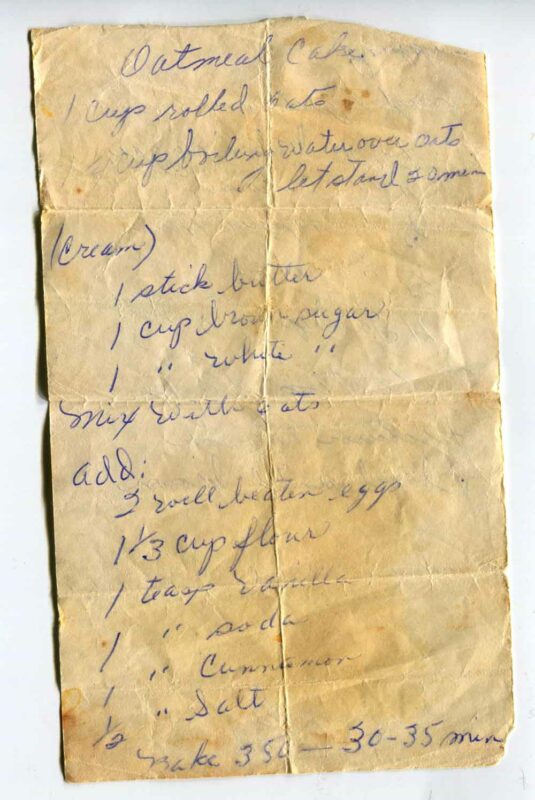 Oatmeal Cake
1 Cup rolled oats
cup boiling water over oats
let stand 20 min
(Cream)
1 stick butter
1 cup brown sugar
1 " White "
Mix with oats
add:
2 well beaten eggs
1 1/3 cup flour
1 teasp vanilla
1 " soda
1 " Cinnamon
1/2 " Salt
Bake 350 — 30-35 min